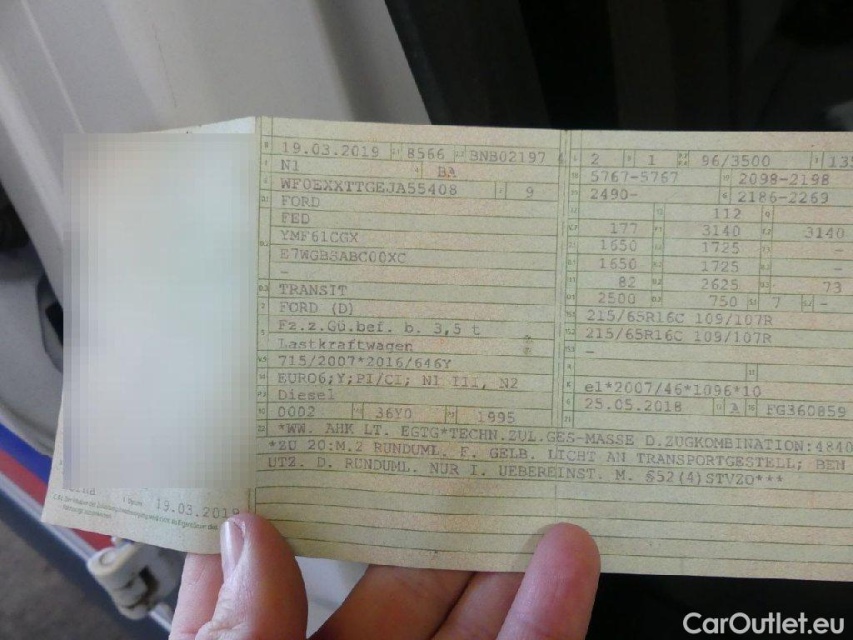 19.03.2019 8566 BNB02197
N1 BA
WF0EXXTTGEJA55408 9
FORD
FED
YMF61CGX
E7WGBSABC00XC
-
TRANSIT
FORD (D)
Fz.z.Gü.bef. b. 3,5 t
Lastkraftwagen
715/2007*2016/646Y
EURO6;Y;PI/CI; N1 III, N2
Diesel
0002 36Y0 1995
2 1 96/3500 135
5767-5767 2098-2198
2490- 2186-2269
112
177 3140 3140
1650 1725 -
1650 1725 -
82 2625 73
2500 750 7 -
215/65R16C 109/107R
215/65R16C 109/107R
-
e1*2007/46*1096*10
25.05.2018 A FG360859
*WW. AHK LT. EGTG*TECHN.ZUL.GES-MASSE D.ZUGKOMBINATION:4840
*ZU 20:M.2 RUNDUML. F. GELB. LICHT AN TRANSPORTGESTELL; BEN
UTZ. D. RUNDUML. NUR I. UEBEREINST. M. §52(4)STVZO***
19.03.2019
CarOutlet.eu